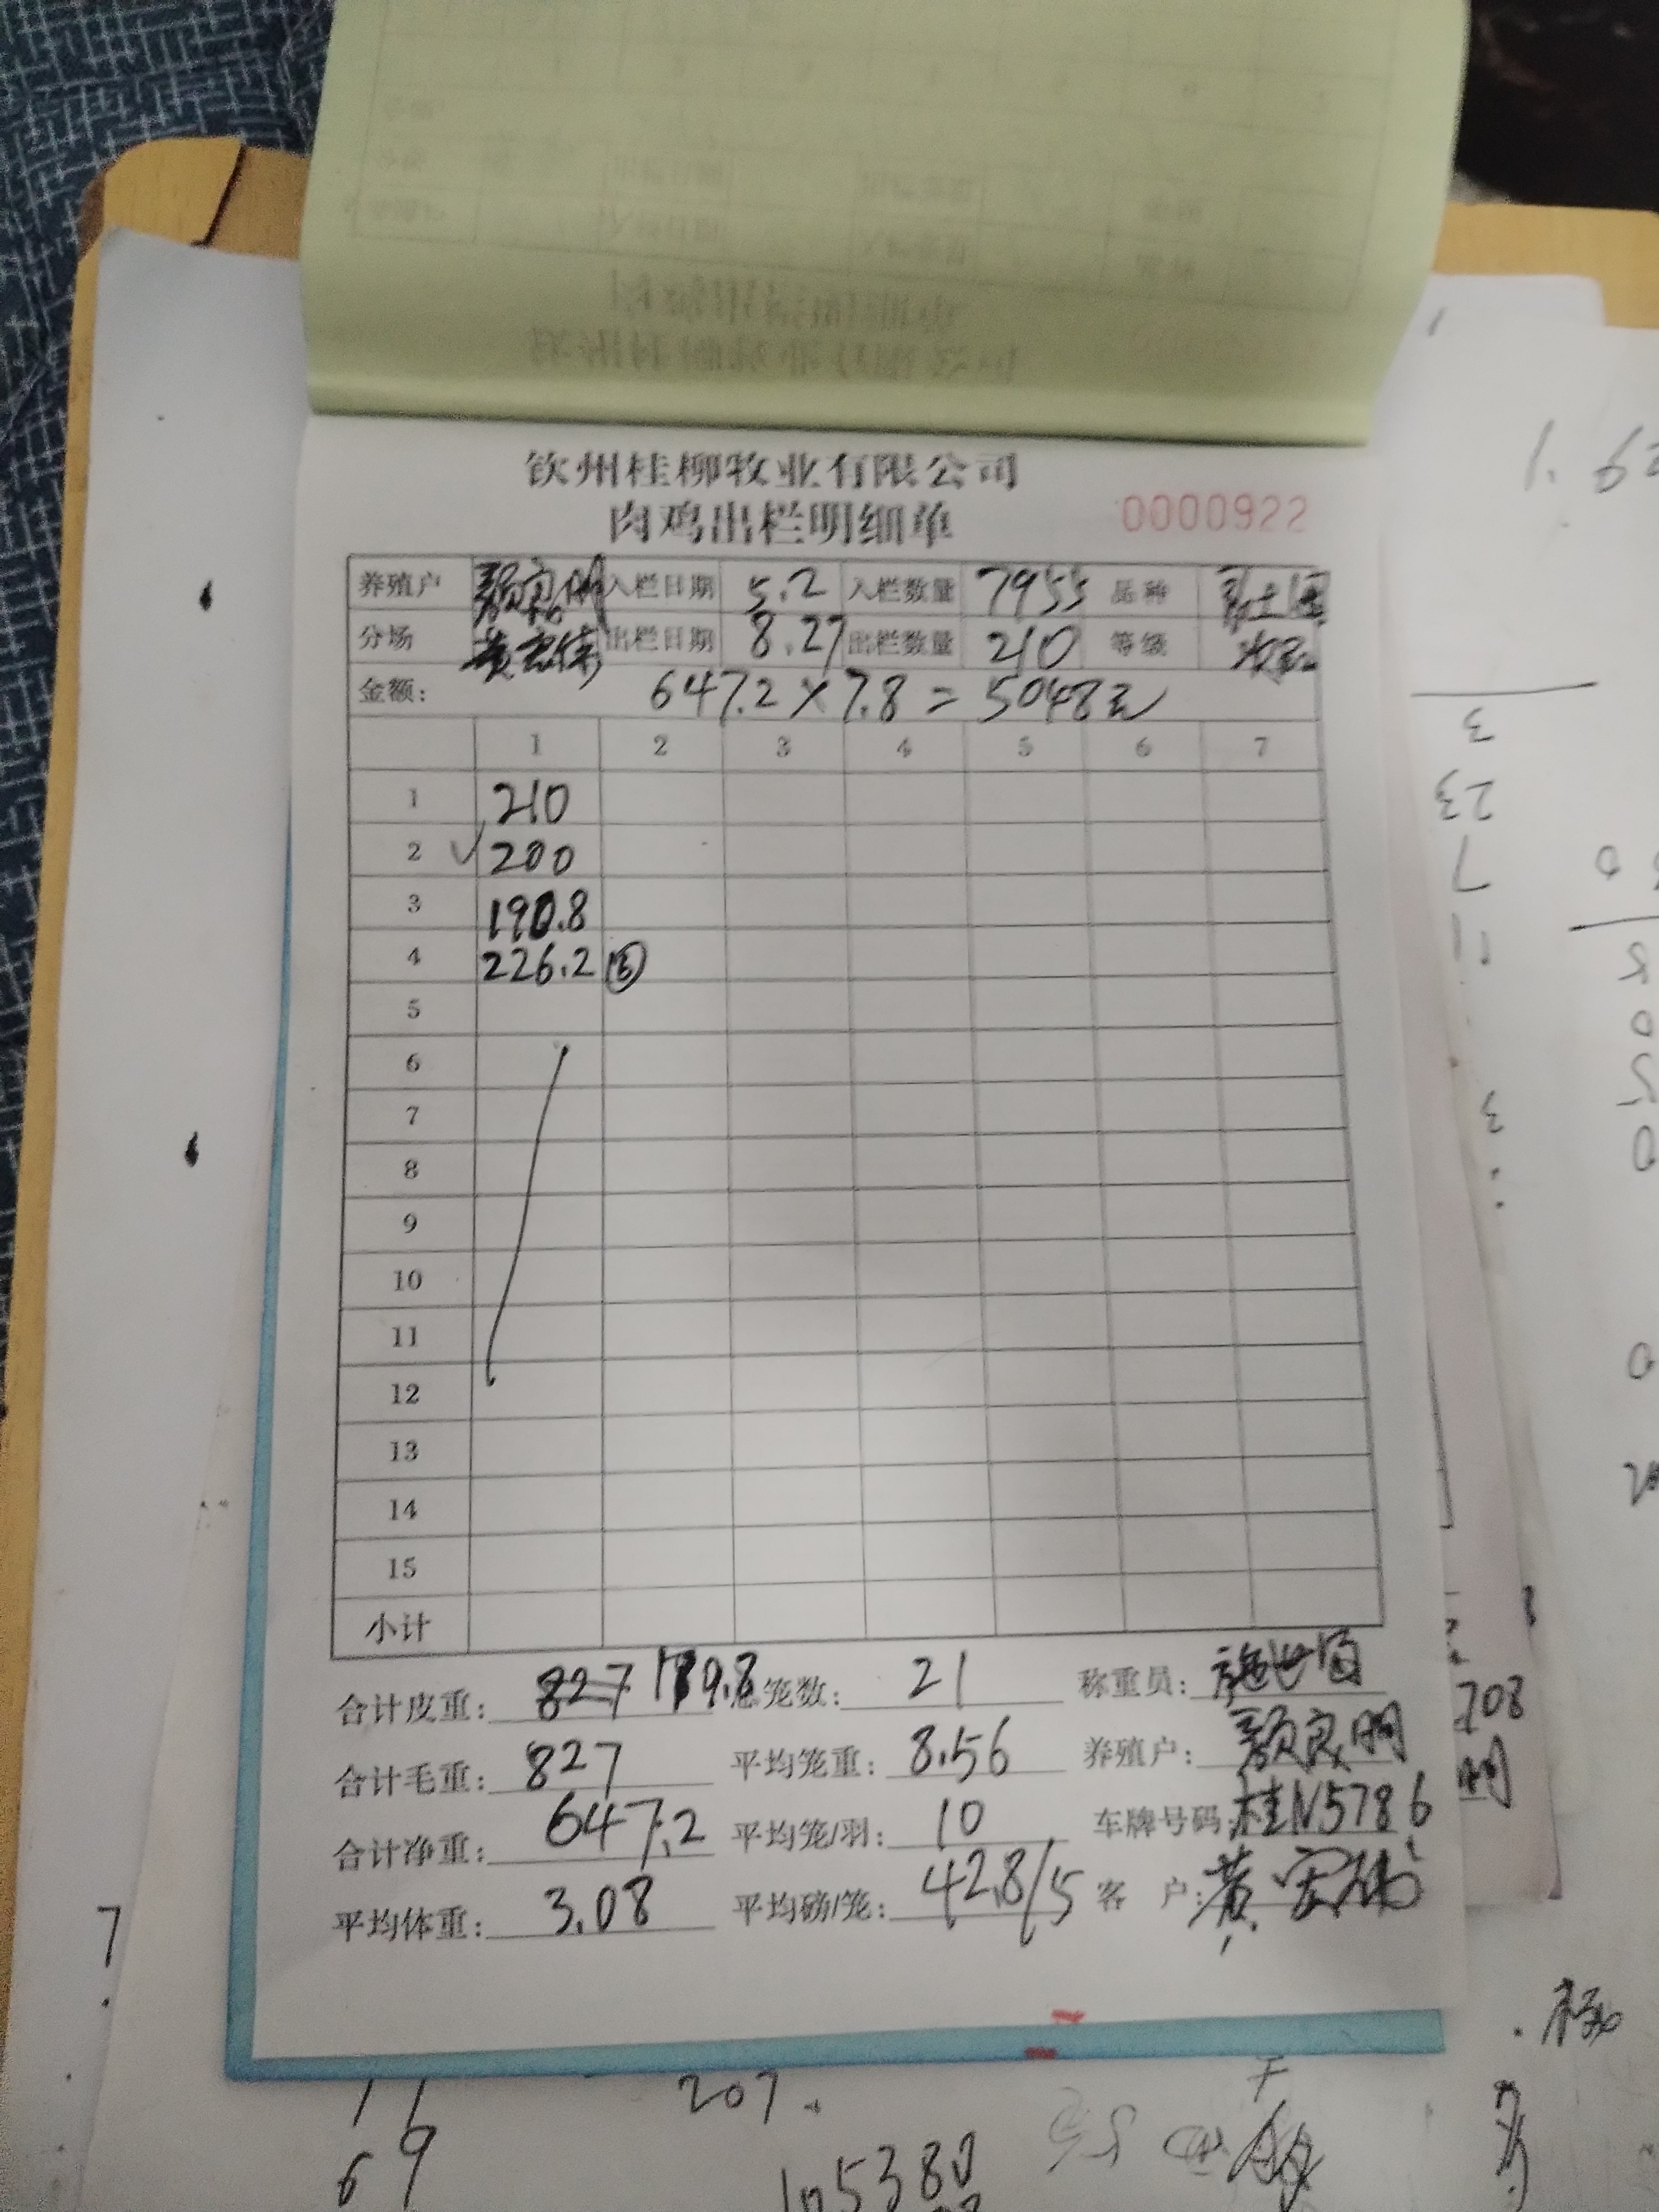 钦州桂柳牧业有限公司
肉鸡出栏明细单 0000922
养殖户 颜良明 入栏日期 5.2 入栏数量 7955 品种
分场 出栏日期 8.27 出栏数量 210 等级
金额: 647.2×7.8=5048元
1 2 3 4 5 6 7
1 210
2 ✓ 200
3 190.8
4 226.2
5
6
7
8
9
10
11
12
13
14
15
小计
合计皮重: 827 179.8 总笼数: 21 称重员:
合计毛重: 827 平均笼重: 8.56 养殖户: 颜良明
合计净重: 647.2 平均笼/羽: 10 车牌号码: 桂N5786
平均体重: 3.08 平均磅/笼: 42.8/5 客户: 黄
3
23
7
11
708
明
7
11
69
207.
5380